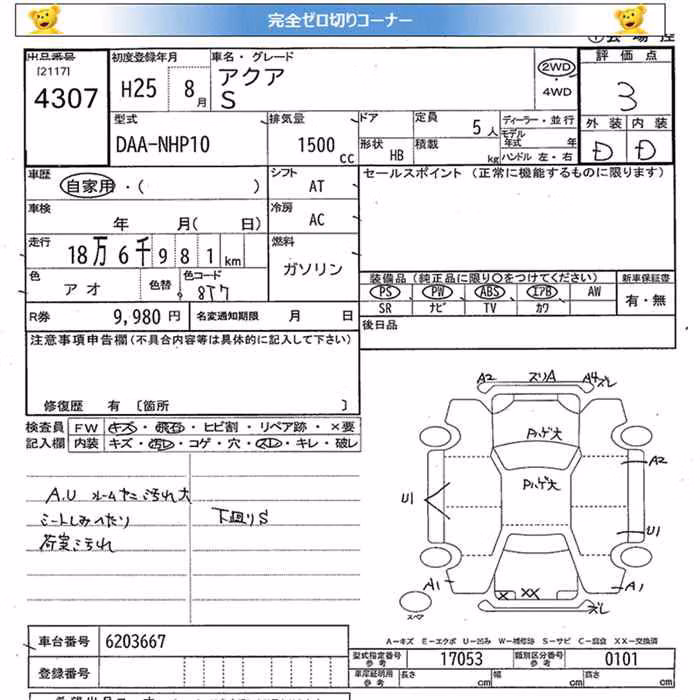 完全ゼロ切りコーナー
出品番号
[2117]
4307
初度登録年月
H25 8月
車名・グレード
アクア
S
2WD
・4WD
評価点
3
外装 内装
D D
型式
DAA-NHP10
排気量
1500 cc
ドア
形状 HB
定員
5人
積載 kg
ディーラー・並行
モデル年式 年
ハンドル 左・右
車歴
自家用・( )
シフト
AT
セールスポイント (正常に機能するものに限ります)
車検
年 月( 日)
冷房
AC
走行
18万6千981km
燃料
ガソリン
色
アオ
色替
色コード
8T7
装備品(純正品に限り〇をつけてください)
PS PW ABS エアB AW
SR ナビ TV カワ
新車保証書
有・無
R券 9,980円
名変通知期限 月 日
後日品
注意事項申告欄(不具合内容等は具体的に記入して下さい)
修復歴 有 〔箇所 〕
検査員記入欄
FW キズ・飛石・ヒビ割・リペア跡・×要
内装 キズ・汚レ・コゲ・穴・スレ・キレ・破レ
A.U ルームヤニ汚れ大
シートしみへたり
荷室汚れ
下廻りS
A2 ズリA A4ズレ
Pハゲ大
Pハゲ大
A2
U1
U1
A1
A1
× XX
ズレ
スペア
A-キズ E-エクボ U-凹み W-補修跡 S-サビ C-腐食 XX-交換済
車台番号 6203667
登録番号
型式指定番号参考 17053
類別区分番号参考 0101
車庫証明用参考 長さ cm 幅 cm 高さ cm